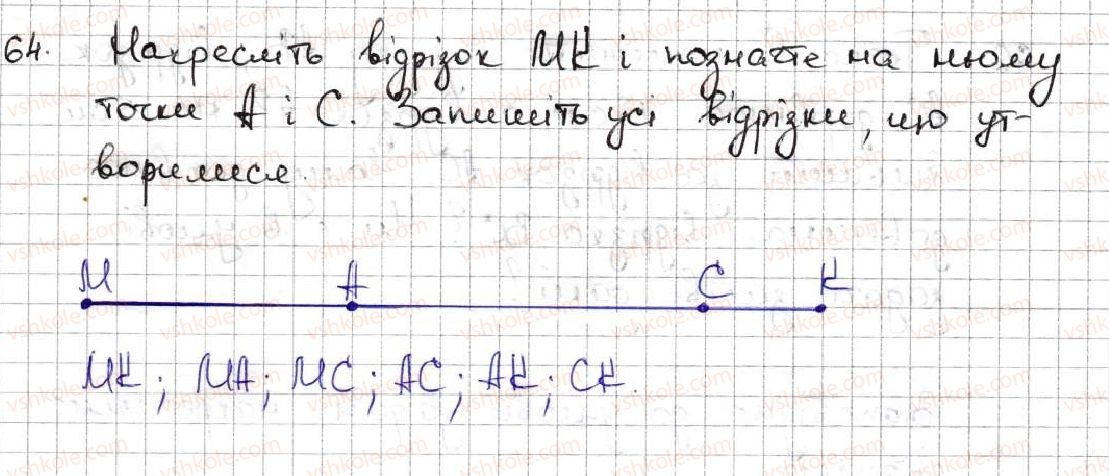 64. Накресліть відрізок МК і позначте на ньому
точки А і С. Запишіть усі відрізки, що ут-
ворилися.
М А С К
МК; МА; МС; АС; АК; СК.